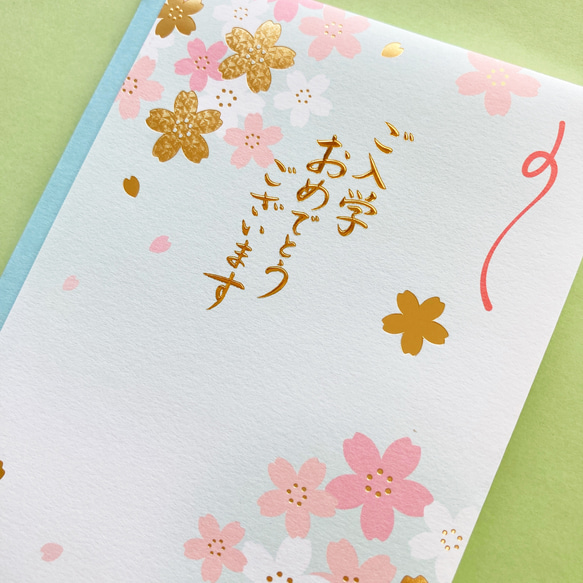 ご入学
おめでとう
ございます